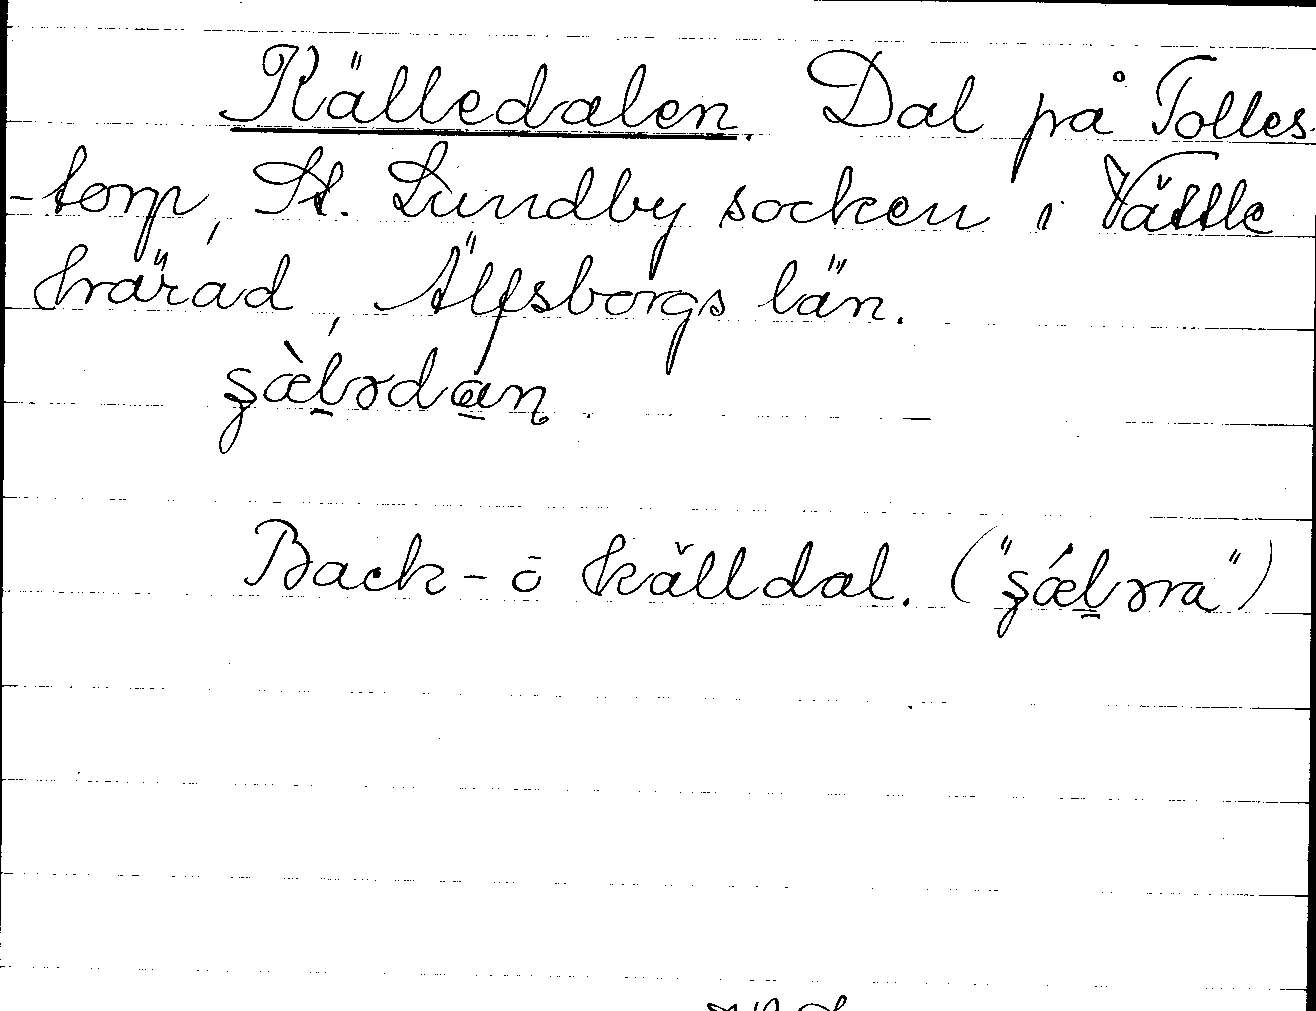 Källedalen. Dal på Tolles-
-torp, St. Lundby socken i Vättle
härad, Älfsborgs län.
Back- o källdal.